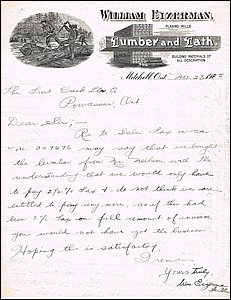 WILLIAM EIZERMAN,
PLANING MILLS
Lumber and Lath.
BUILDING MATERIALS OF
ALL DESCRIPTION
Mitchell, Ont. 23
The Trout Creek Co
Powassan, Ont
Dear Sir;-
Re to Sales Tax on car
No. 209476 may say that we bought
the lumber from Mr. Neilson with the
understanding that we would only have
to pay 2½% Tax & do not think we are
entitled to pay any more, as if this had
been 5% Tax on full amount of invoice
you would not have got the business
Hoping this is satisfactory,
I remain
Yours truly,
Wm. Eizerman